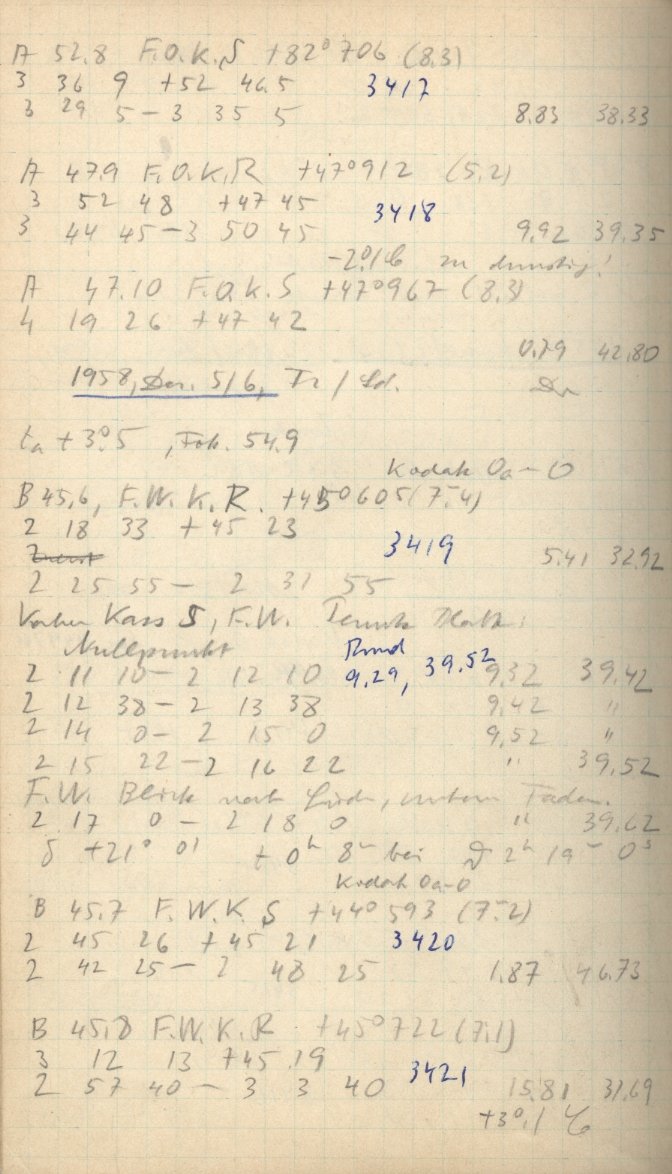 A 52.8 F.O.K.S +82°706 (8.3)
3 36 9 +52 46.5 3417
3 29 5 – 3 35 5 8.83 38.33
A 47.9 F.O.K.R +47°912 (5.2)
3 52 48 +47 45 3418
3 44 45 – 3 50 45 9.92 39.35
zu dunstig!
A 47.10 F.O.K.S +47°967 (8.3)
4 19 26 +47 42
0.79 42.80
1958, Dez. 5/6,
+3°.5, Fok. 54.9
Kodak Oa–O
B 45.6, F.W.K.R. +45°605 (7.4)
2 18 33 +45 23
3419 5.41 32.92
2 25 55 – 2 31 55
Vorher Kass S, F.W.
Nullpunkt
2 11 10 – 2 12 10 9.29, 39.52 9.32 39.42
2 12 38 – 2 13 38 9.42 "
2 14 0 – 2 15 0 9.52 "
2 15 22 – 2 16 22 " 39.52
F.W. Blick nach Süden, unterm Faden.
2 17 0 – 2 18 0 " 39.62
δ +21° 01' t 0h 8m bei 2h 19m 0s
Kodak Oa–O
B 45.7 F.W.K.S +44°593 (7.2)
2 45 26 +45 21 3420
2 42 25 – 2 48 25 1.87 46.73
B 45.8 F.W.K.R +45°722 (7.1)
3 12 13 +45 19
2 57 40 – 3 3 40 3421 15.81 31.69
+3°.1